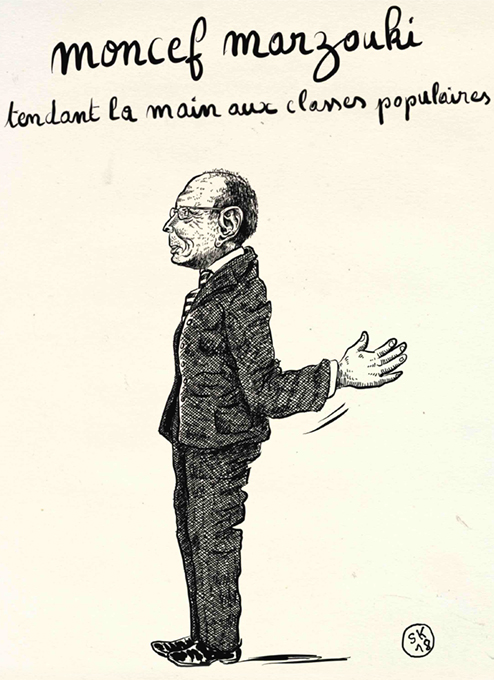 moncef marzouki
tendant la main aux classes populaires
SK
18